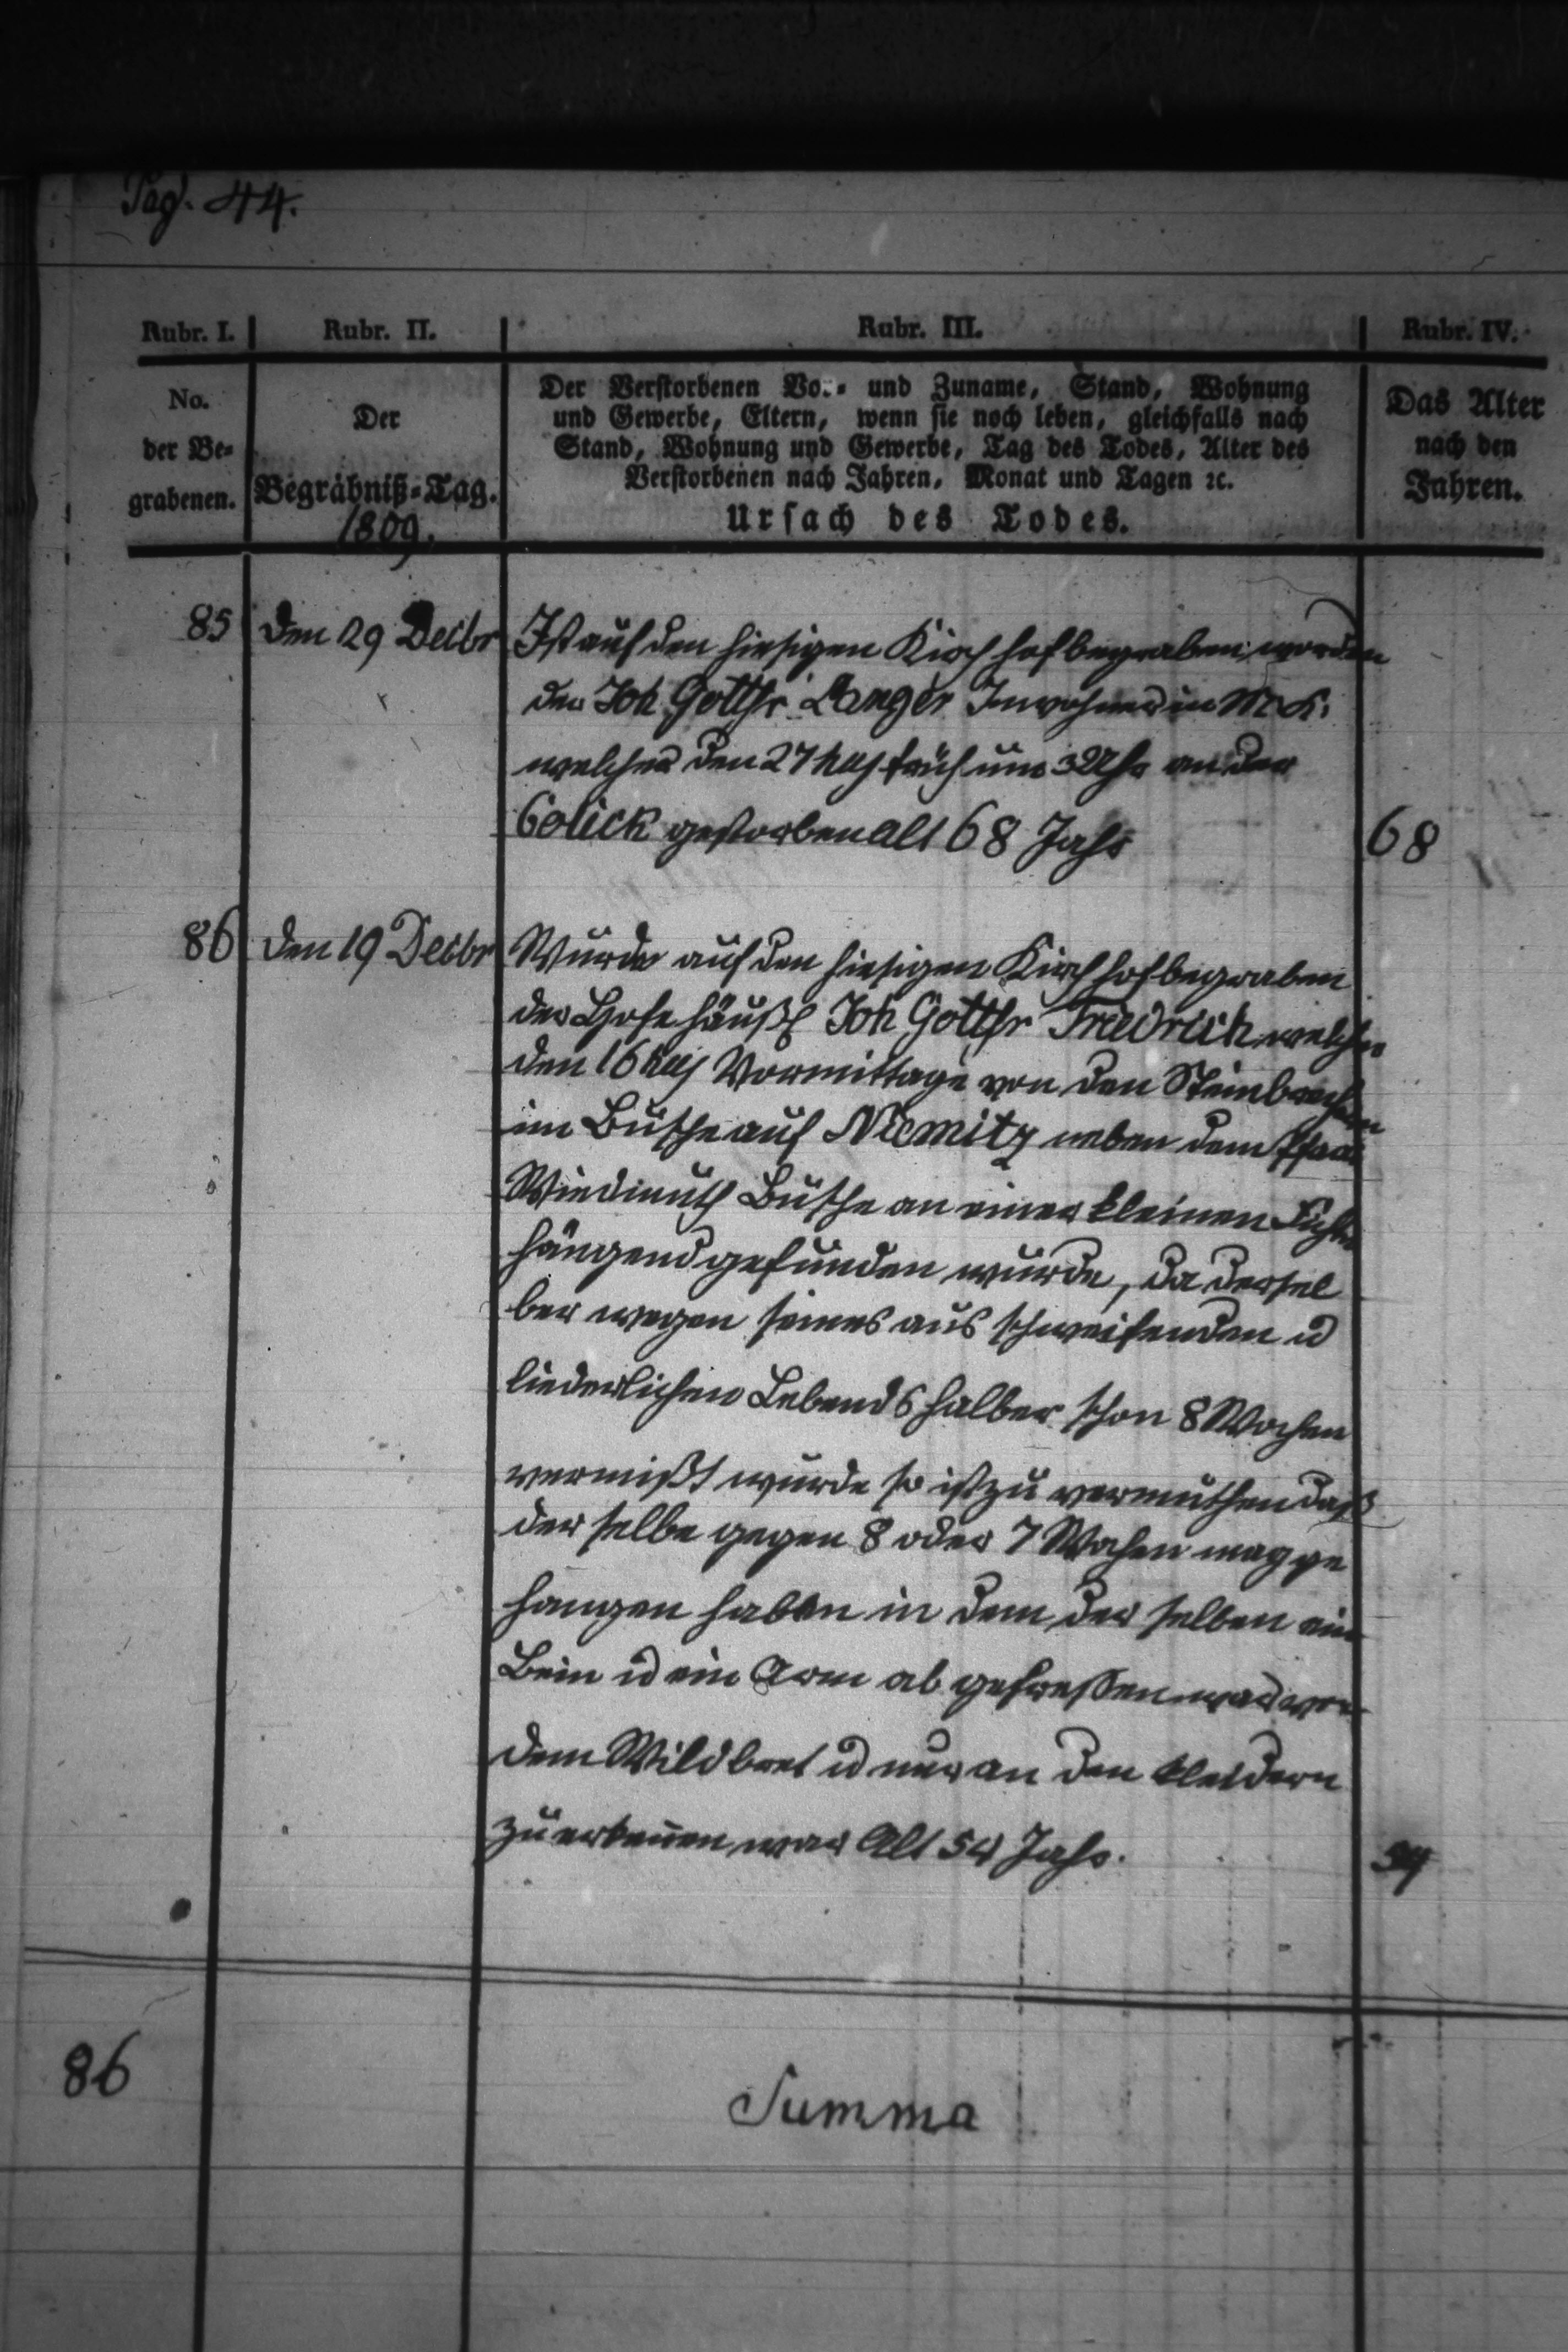 Pag. 44.
Rubr. I.
Rubr. II.
Rubr. III.
Rubr. IV.
No.
der Be-
grabenen.
Der
Begräbniß-Tag.
1809.
Der Verstorbenen Vor- und Zuname, Stand, Wohnung
und Gewerbe, Eltern, wenn sie noch leben, gleichfalls nach
Stand, Wohnung und Gewerbe, Tag des Todes, Alter des
Verstorbenen nach Jahren, Monat und Tagen ꝛc.
Ursach des Todes.
Das Alter
nach den
Jahren.
85
den 29 Decbr
Ist auf den hiesigen Kirch hof begraben worden
der Joh Gottfr Langer Inwohner in M K.
welcher den 27 früh um 3 Uhr an der
Colick gestorben alt 68 Jahr
68
86
den 19 Decbr
Wurde auf den hiesigen Kirch hof begraben
der Hofe häußl Joh Gottfr Friedrich welcher
den 16 Vormittage von den Steinbrechern
im Busche auf Niemitz neben dem Pfarr
Wiedmuth Busche an einer kleinen Fichte
hängend gefunden wurde, da dersel
ber wegen seines aus schweifenden u
liederlichen Lebends halber schon 8 Wochen
vermißt wurde so ist zu vermuthen daß
der selbe gegen 8 oder 7 Wochen mag ge
hangen haben in dem der selben ein
Bein u ein Arm ab gefressen war von
dem Wildbret u nur an den Kleidern
zu erkennen war Alt 54 Jahr.
54
86
Summa